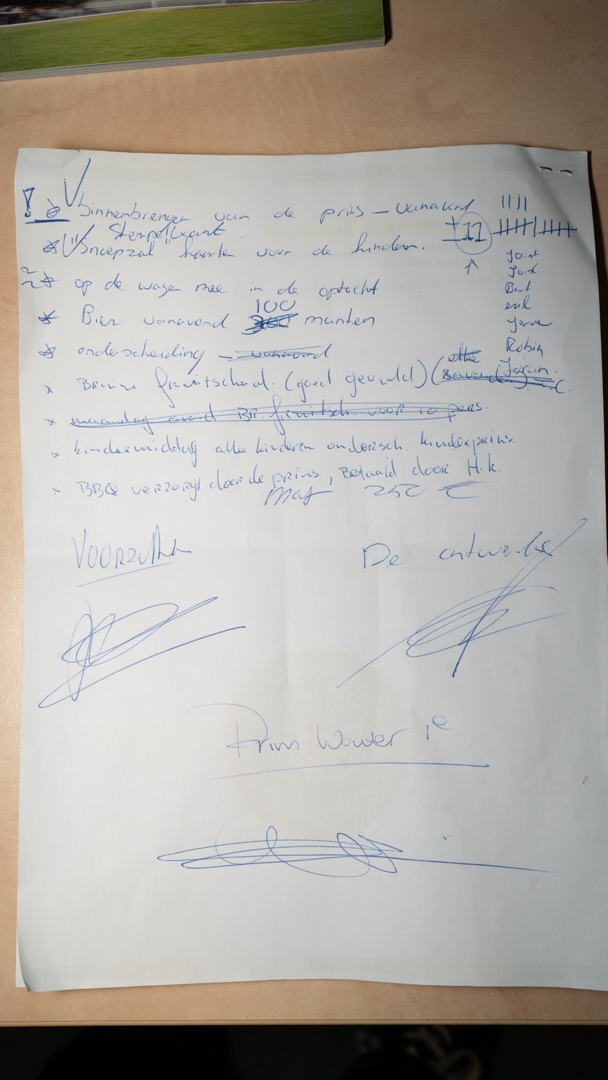 ! binnenbrengen van de prins - vanavond
Stempelkaart
"Snoepzak" kaarten voor de kinderen.
± 11
op de wagen mee in de optocht
100
Bier vanavond 300 munten
onderscheiding - vanavond
Bruine fruitschaal. (goed gevuld)
maandag avond BR. fruitsch voor 10 pers.
kindermiddag alle kinderen ondersch. kinderprins.
BBQ verzorgd door de prins, Betaald door H.k.
Max 250 €
Joost
Jork
Bart
Robin
Voorzitter
De ontwerker
Prins Wouter 1e